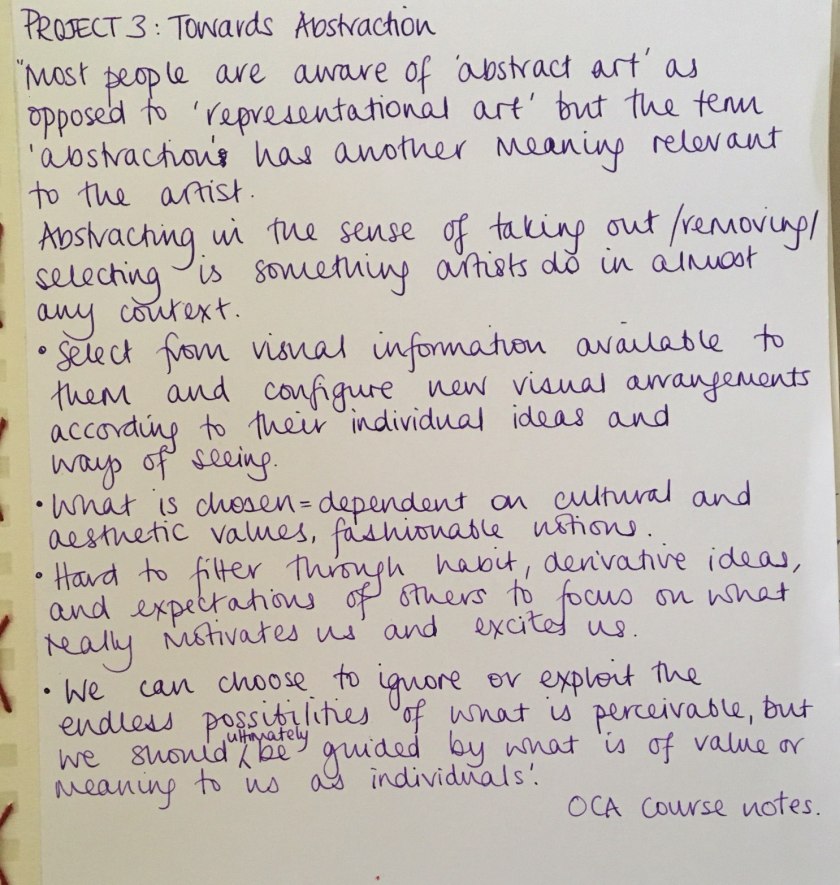 PROJECT 3: Towards Abstraction
"Most people are aware of 'abstract art' as
opposed to 'representational art' but the term
'abstraction' has another meaning relevant
to the artist.
Abstracting in the sense of taking out/removing/
selecting is something artists do in almost
any context.
• Select from visual information available to
them and configure new visual arrangements
according to their individual ideas and
ways of seeing.
• What is chosen = dependent on cultural and
aesthetic values, fashionable notions.
• Hard to filter through habit, derivative ideas,
and expectations of others to focus on what
really motivates us and excites us.
• We can choose to ignore or exploit the
endless possibilities of what is perceivable, but
we should ultimately be guided by what is of value or
meaning to us as individuals'.
OCA course notes.